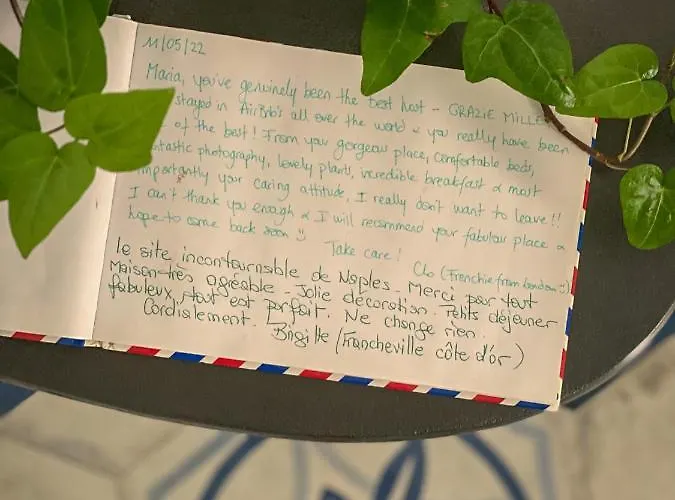 11/05/22
Maria, you've genuinely been the best host - GRAZIE MILLE
stayed in AirBnb's all over the world & you really have been
of the best! From your gorgeous place, comfortable beds,
tastic photography, lovely plants, incredible breakfast & most
importantly your caring attitude, I really don't want to leave!!
I can't thank you enough & I will recommend your fabulous place &
hope to come back soon :)
Take care!
Clo (Frenchie from London :))
Le site incontournable de Naples. Merci pour tout
Maison très agréable - Jolie décoration. Petits déjeuner
fabuleux, tout est parfait. Ne change rien.
Cordialement.
Brigitte (Francheville côte d'or)